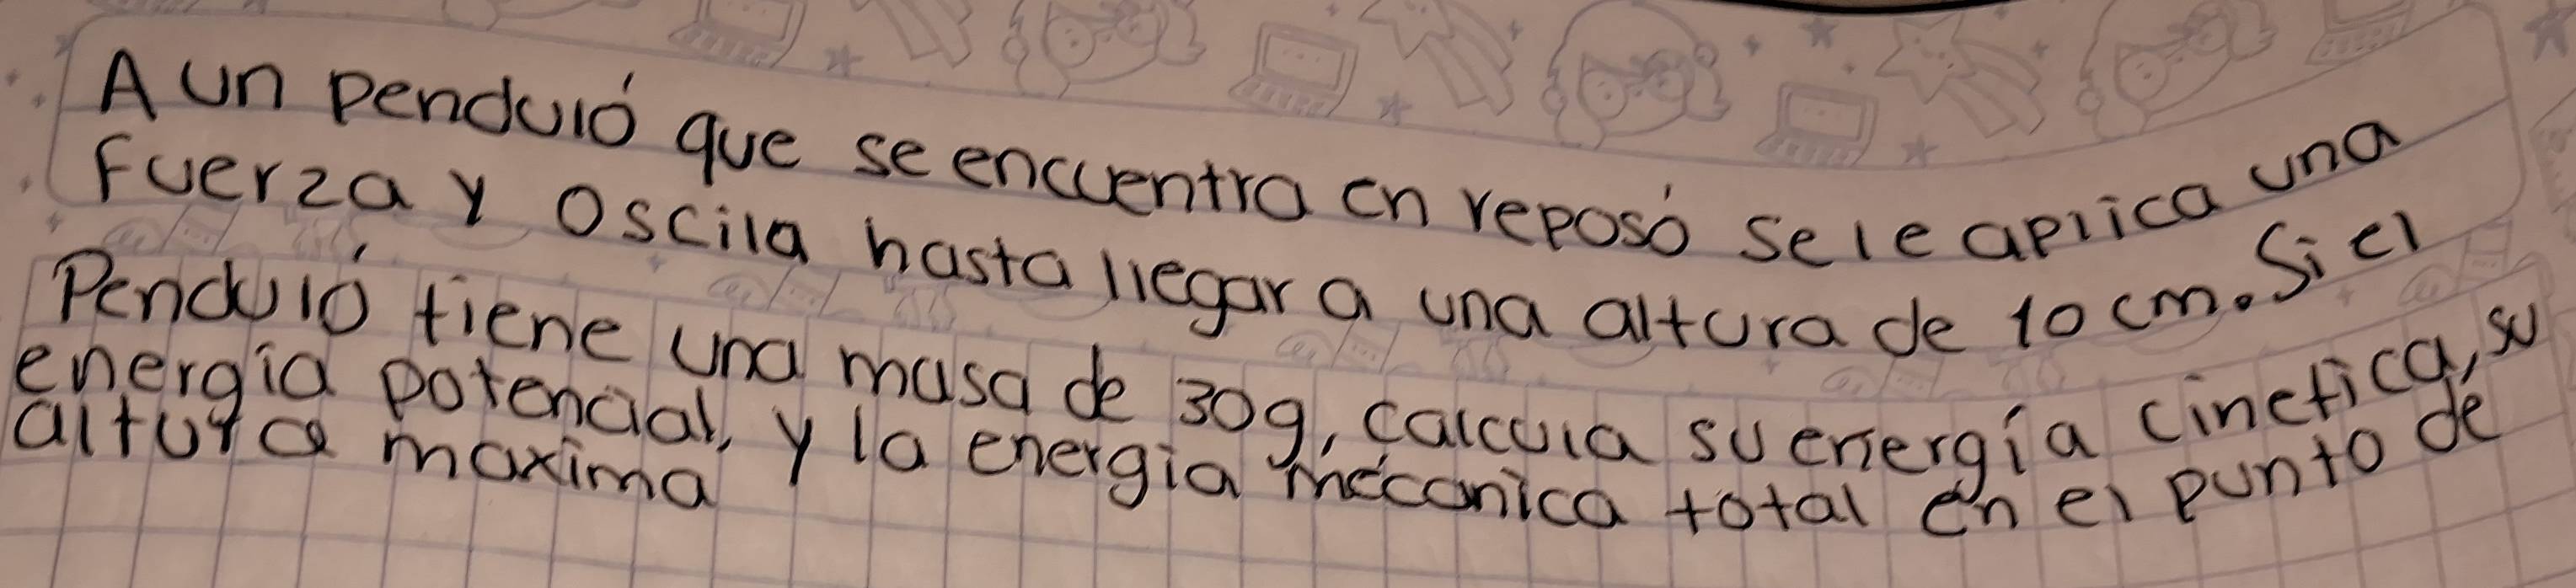 A un penduló que se encuentra en reposó se le aplica una
fuerza y oscila hasta llegar a una altura de 10 cm. Si el
Penduló tiene una masa de 30g, calcula su energía cinetica, su
energía potencial, y la energia mécanica total en el punto de
altura maxima